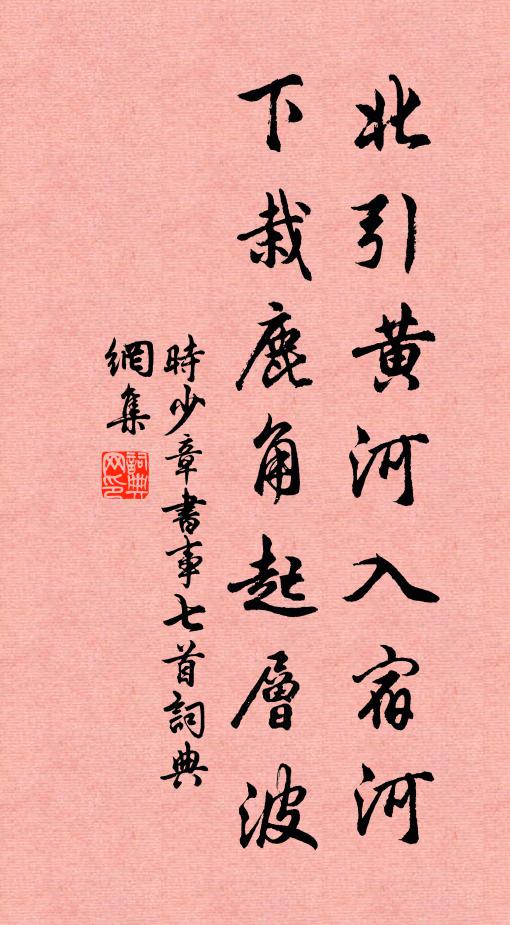 北引黄河入宿河
下栽鹿角起層波
時少章書事七首詞典
網集
詞典网印